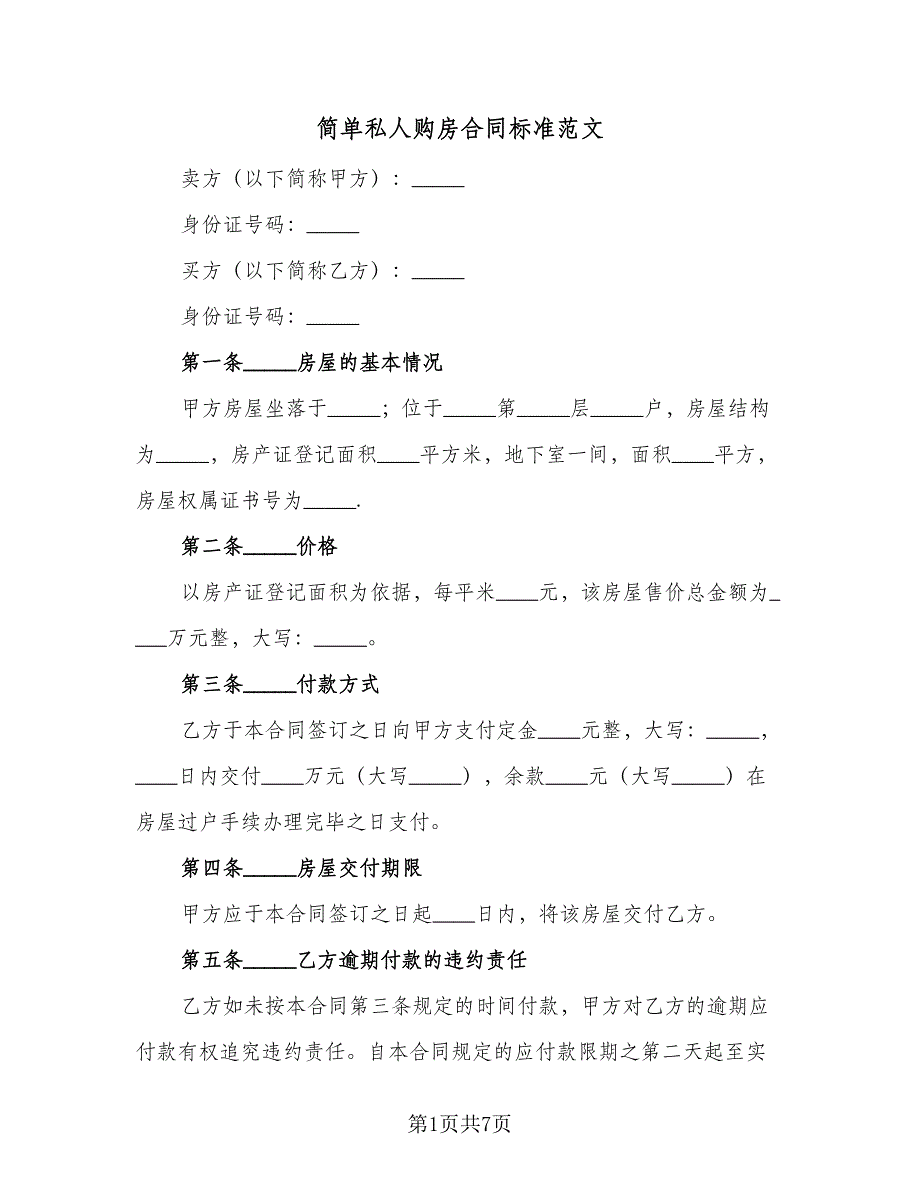 简单私人购房合同标准范文
卖方（以下简称甲方）：_____
身份证号码：_____
买方（以下简称乙方）：_____
身份证号码：_____
第一条_____房屋的基本情况
甲方房屋坐落于_____；位于_____第_____层_____户，房屋结构
为_____，房产证登记面积____平方米，地下室一间，面积____平方，
房屋权属证书号为_____.
第二条_____价格
以房产证登记面积为依据，每平米____元，该房屋售价总金额为_
___万元整，大写：_____。
第三条_____付款方式
乙方于本合同签订之日向甲方支付定金____元整，大写：_____，
____日内交付____万元（大写_____），余款____元（大写_____）在
房屋过户手续办理完毕之日支付。
第四条_____房屋交付期限
甲方应于本合同签订之日起____日内，将该房屋交付乙方。
第五条_____乙方逾期付款的违约责任
乙方如未按本合同第三条规定的时间付款，甲方对乙方的逾期应
付款有权追究违约责任。自本合同规定的应付款限期之第二天起至实
第1页共7页